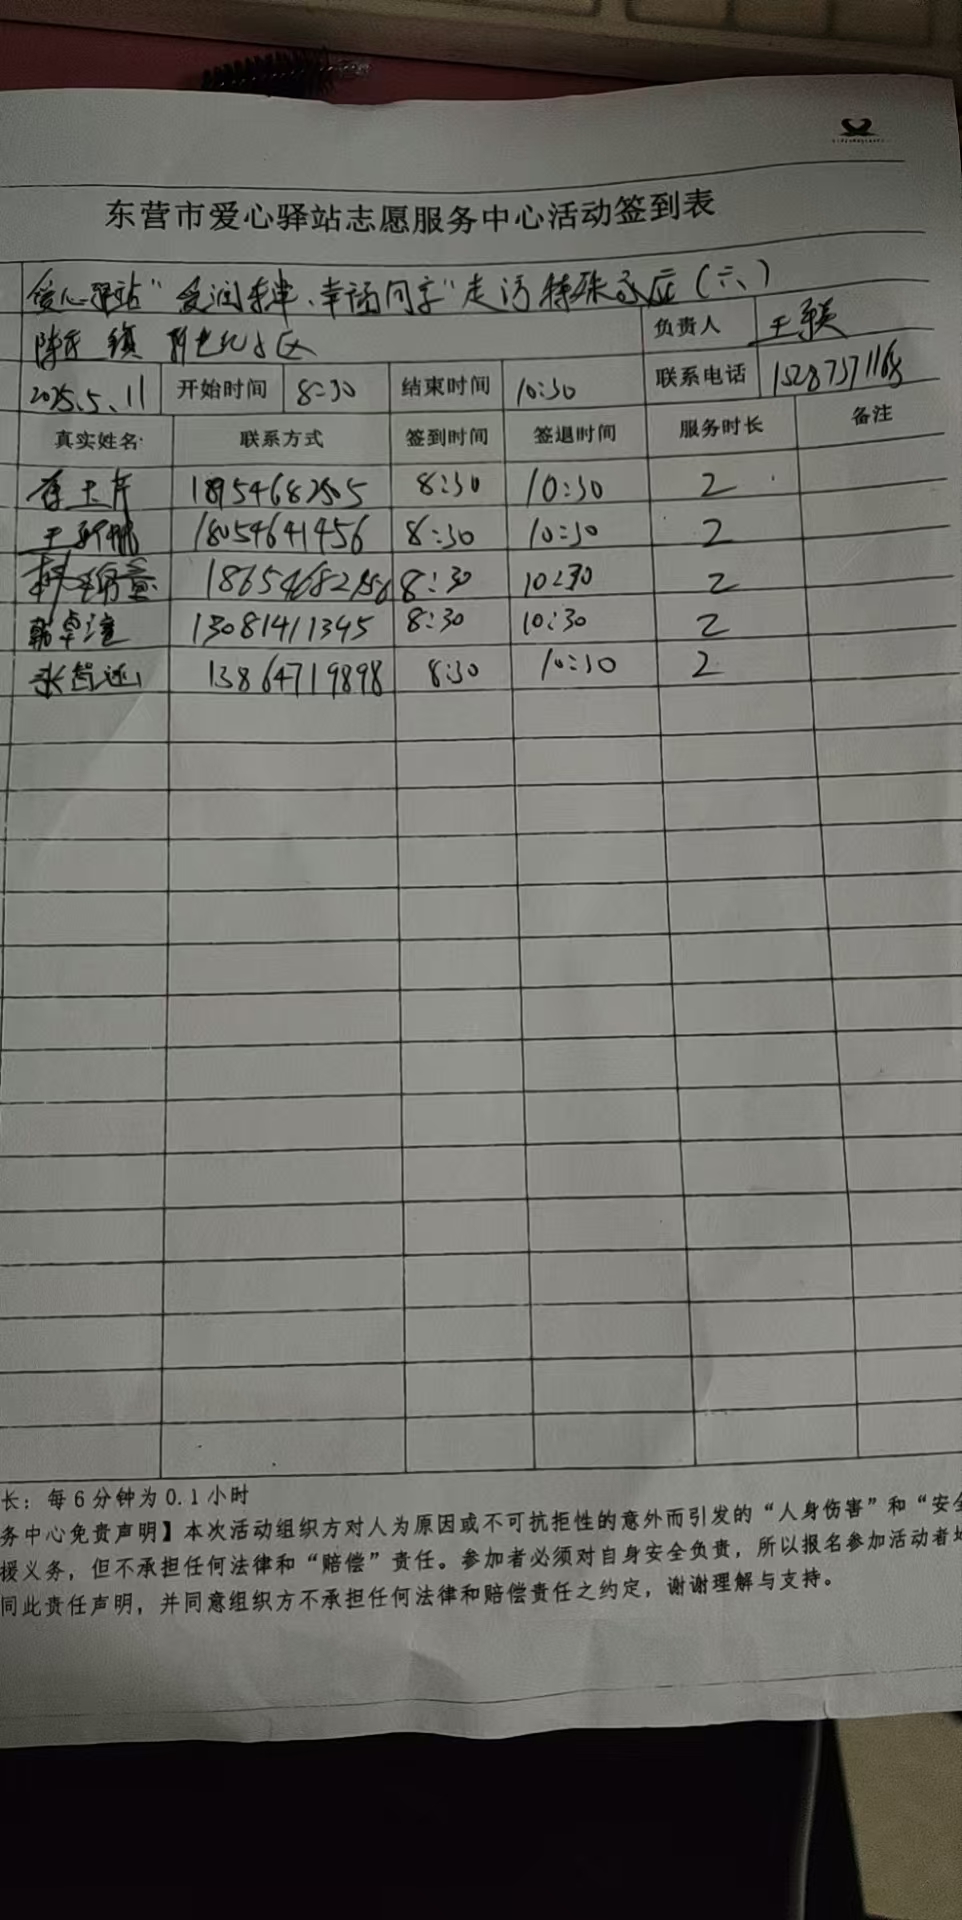 东营市爱心驿站志愿服务中心活动签到表
爱心驿站“爱润 、幸福同享”走访特殊家庭(六)
镇 新世纪小区 负责人 王
2025.5.11 开始时间 8:30 结束时间 10:30 联系电话 15287371168
真实姓名 联系方式 签到时间 签退时间 服务时长 备注
18954682505 8:30 10:30 2
王 18054641456 8:30 10:30 2
8:30 10:30 2
韩卓 13081411345 8:30 10:30 2
张 13864719898 8:30 10:30 2
长：每6分钟为0.1小时
务中心免责声明】本次活动组织方对人为原因或不可抗拒性的意外而引发的“人身伤害”和“安全
援义务，但不承担任何法律和“赔偿”责任。参加者必须对自身安全负责，所以报名参加活动者
同此责任声明，并同意组织方不承担任何法律和赔偿责任之约定，谢谢理解与支持。